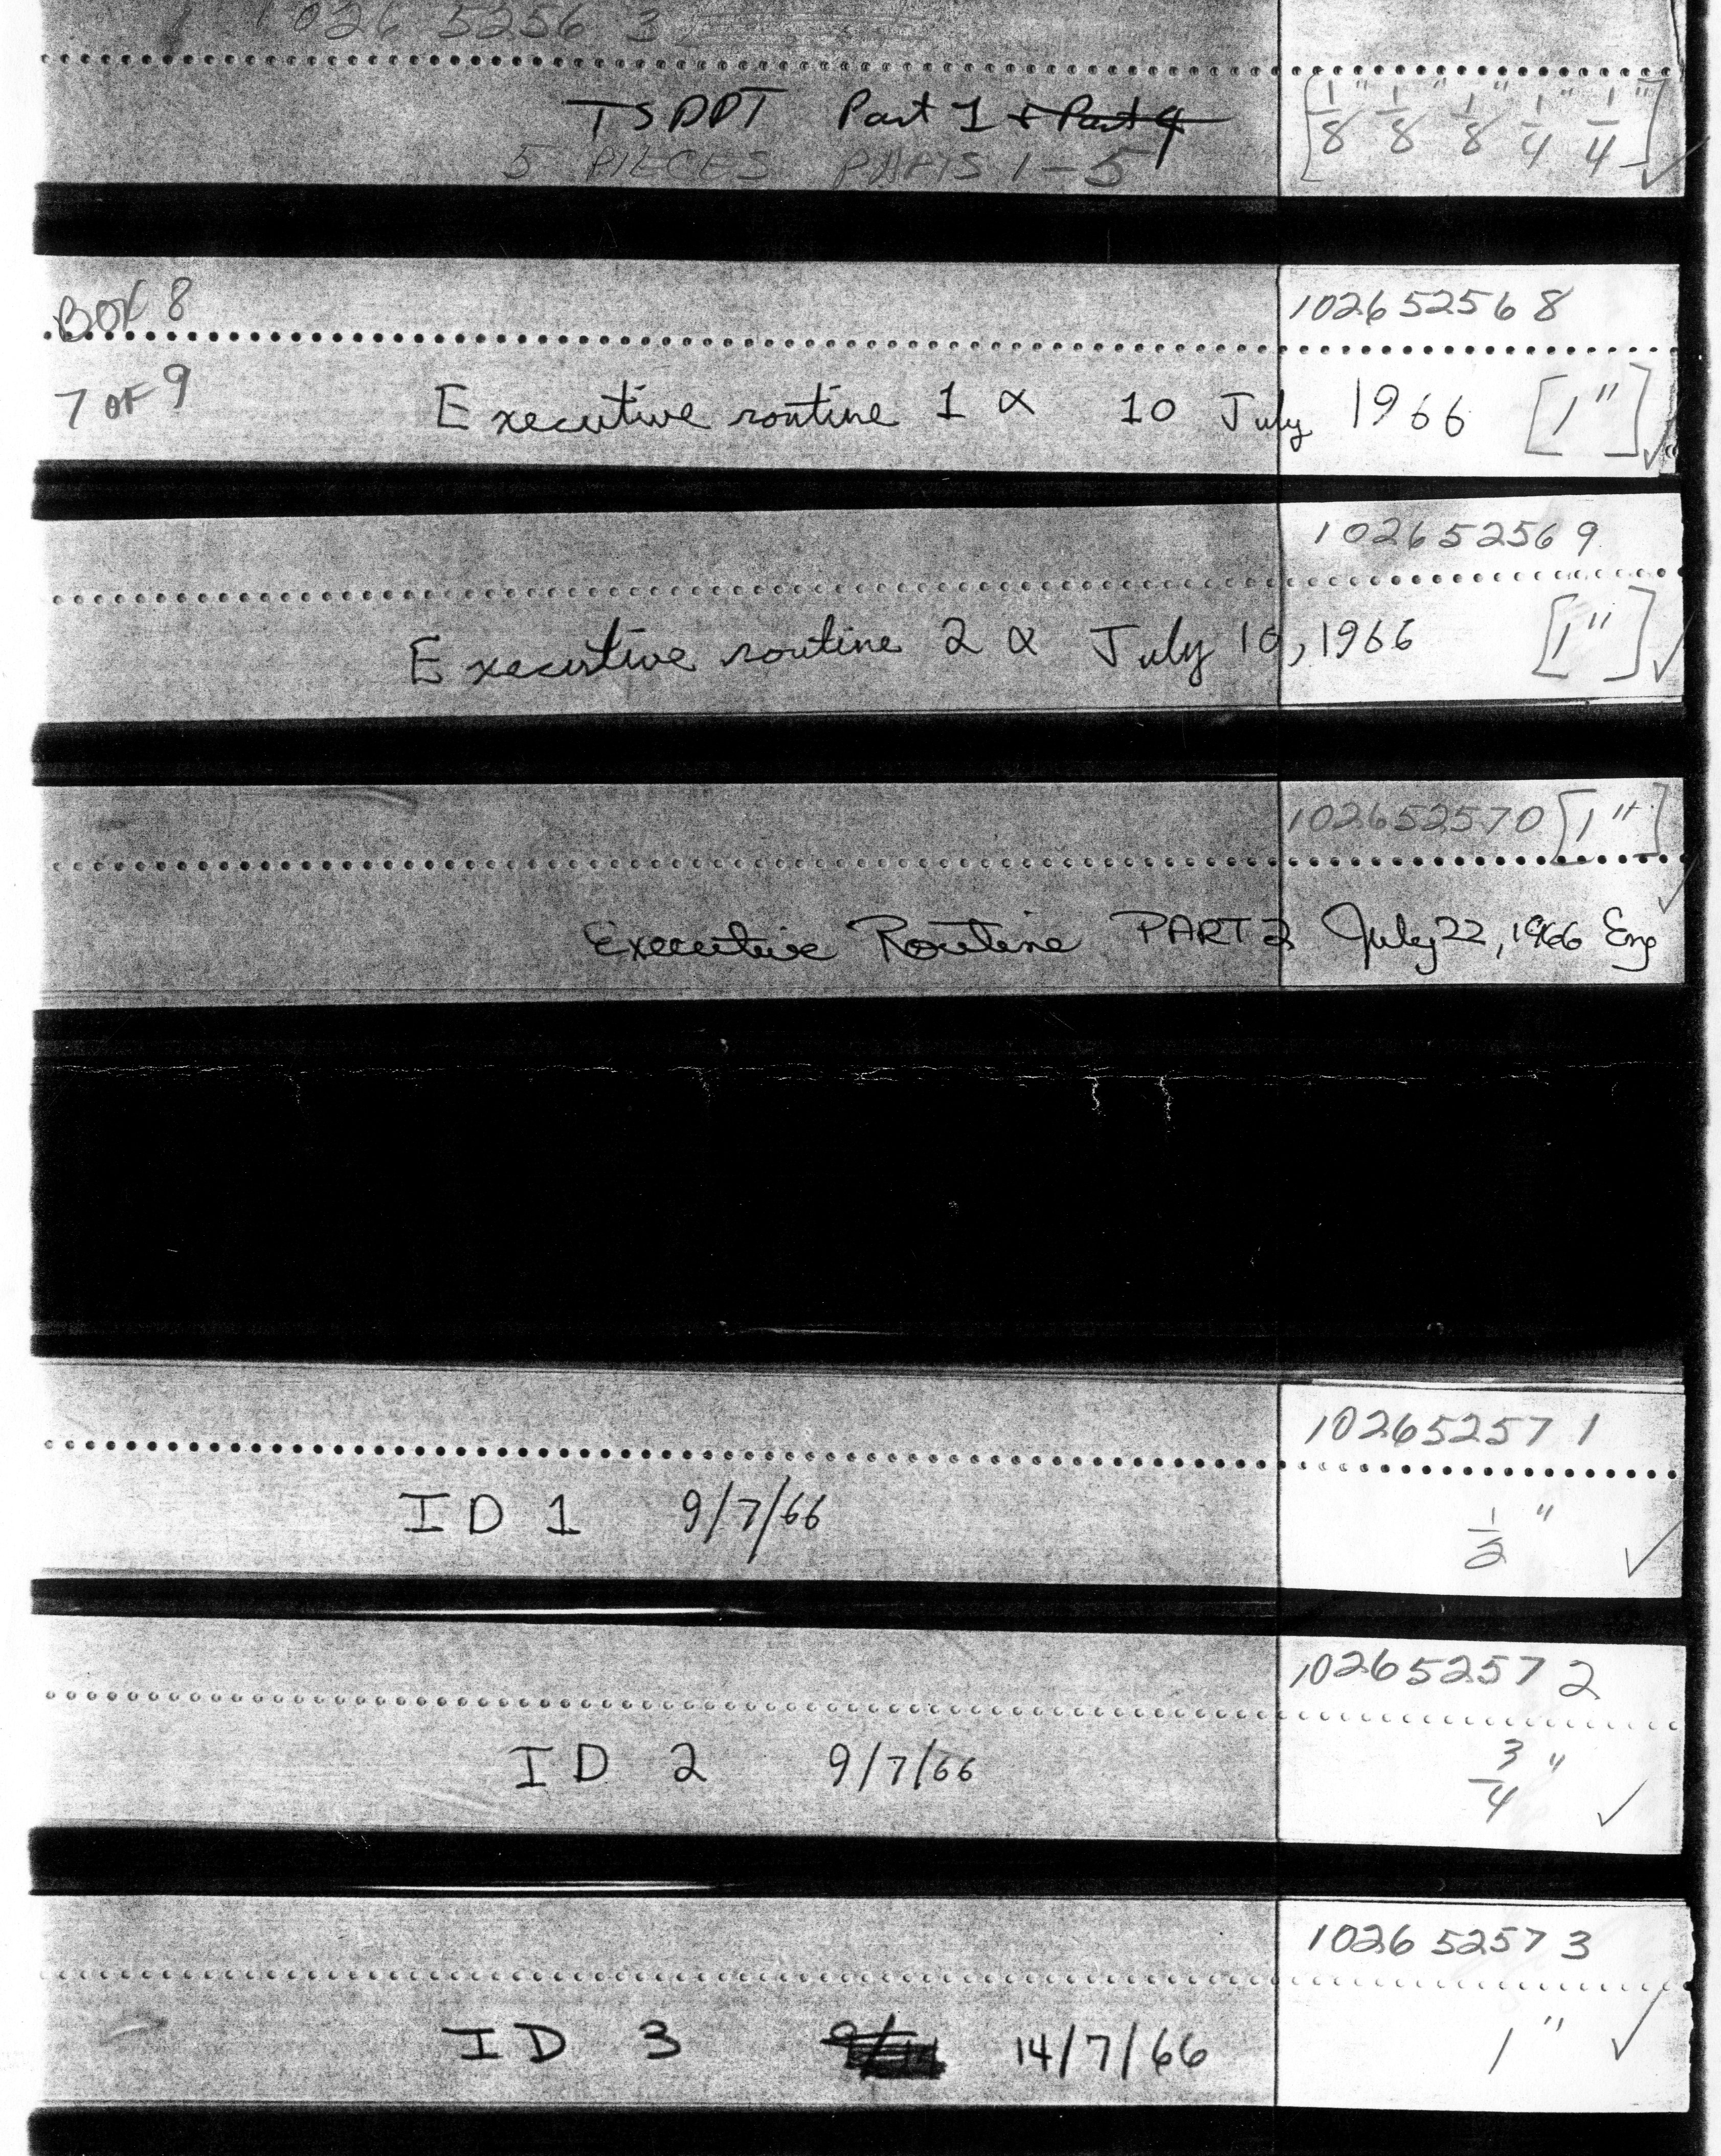 1026 5256 3
TSDDT Part 1 + Part 4
5 PIECES PARTS 1-5
[1/8" 1/8" 1/8" 1/4" 1/4"] ✓
BOX 8
102652568
7 OF 9
Executive routine 1 α 10 July 1966 [1"] ✓
102652569
Executive routine 2 α July 10, 1966 [1"] ✓
102652570 [1"] ✓
Executive Routine PART 2 July 22, 1966 Eng
102652571
ID 1 9/7/66 1/2" ✓
102652572
ID 2 9/7/66 3/4" ✓
1026 5257 3
ID 3 14/7/66 1" ✓